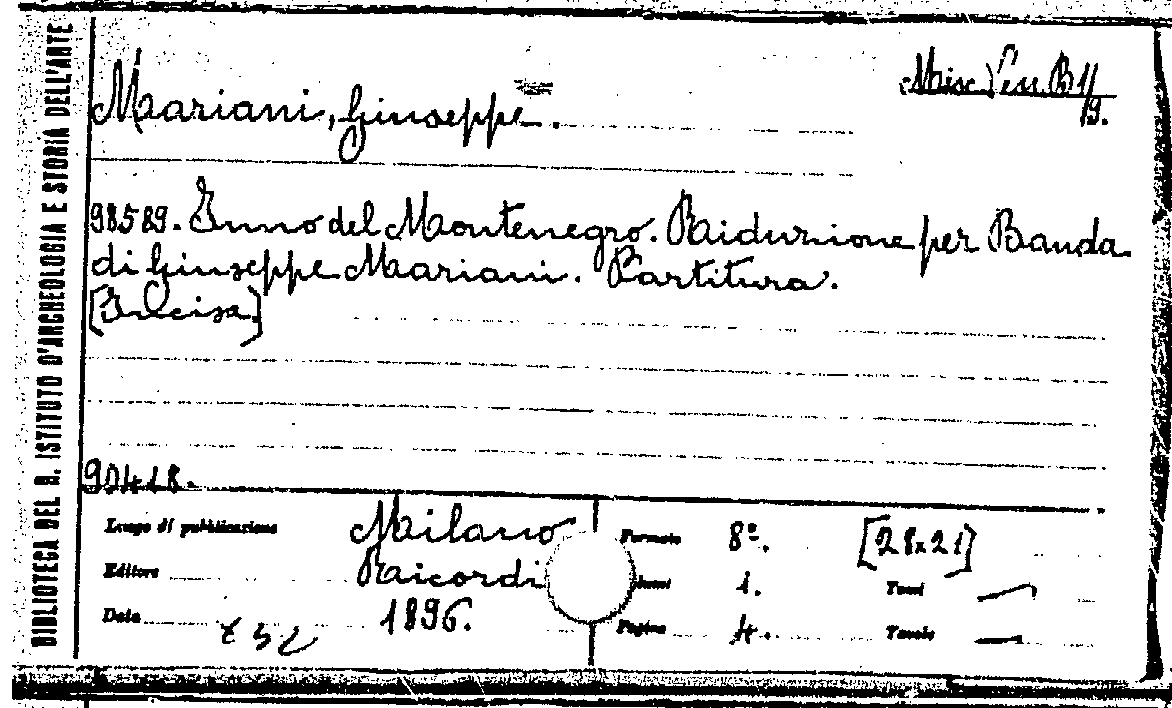 BIBLIOTECA DEL R. ISTITUTO D'ARCHEOLOGIA E STORIA DELL'ARTE
Mariani, Giuseppe.
Misc. Vess. B 1/9.
98589. Inno del Montenegro. Riduzione per Banda
di Giuseppe Mariani. Partitura.
[Incisa]
90418.
Luogo di pubblicazione Milano
Editore Ricordi
Data 1896.
Formato 8º. [28x21]
Volumi 1. Tomi —
Pagine 4. Tavole —